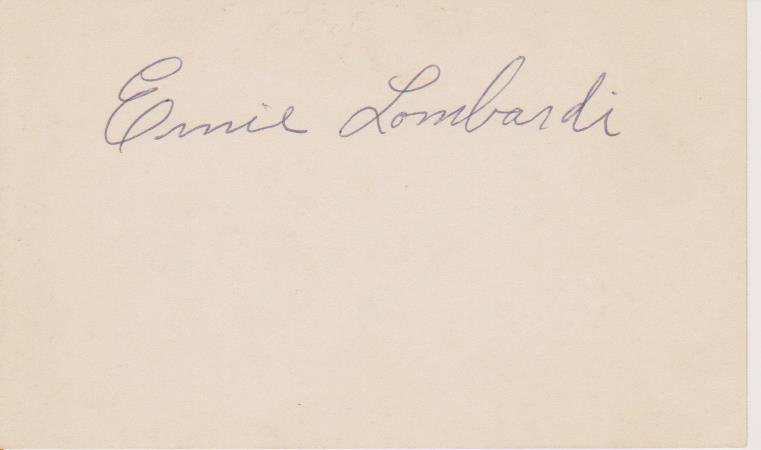 Ernie Lombardi